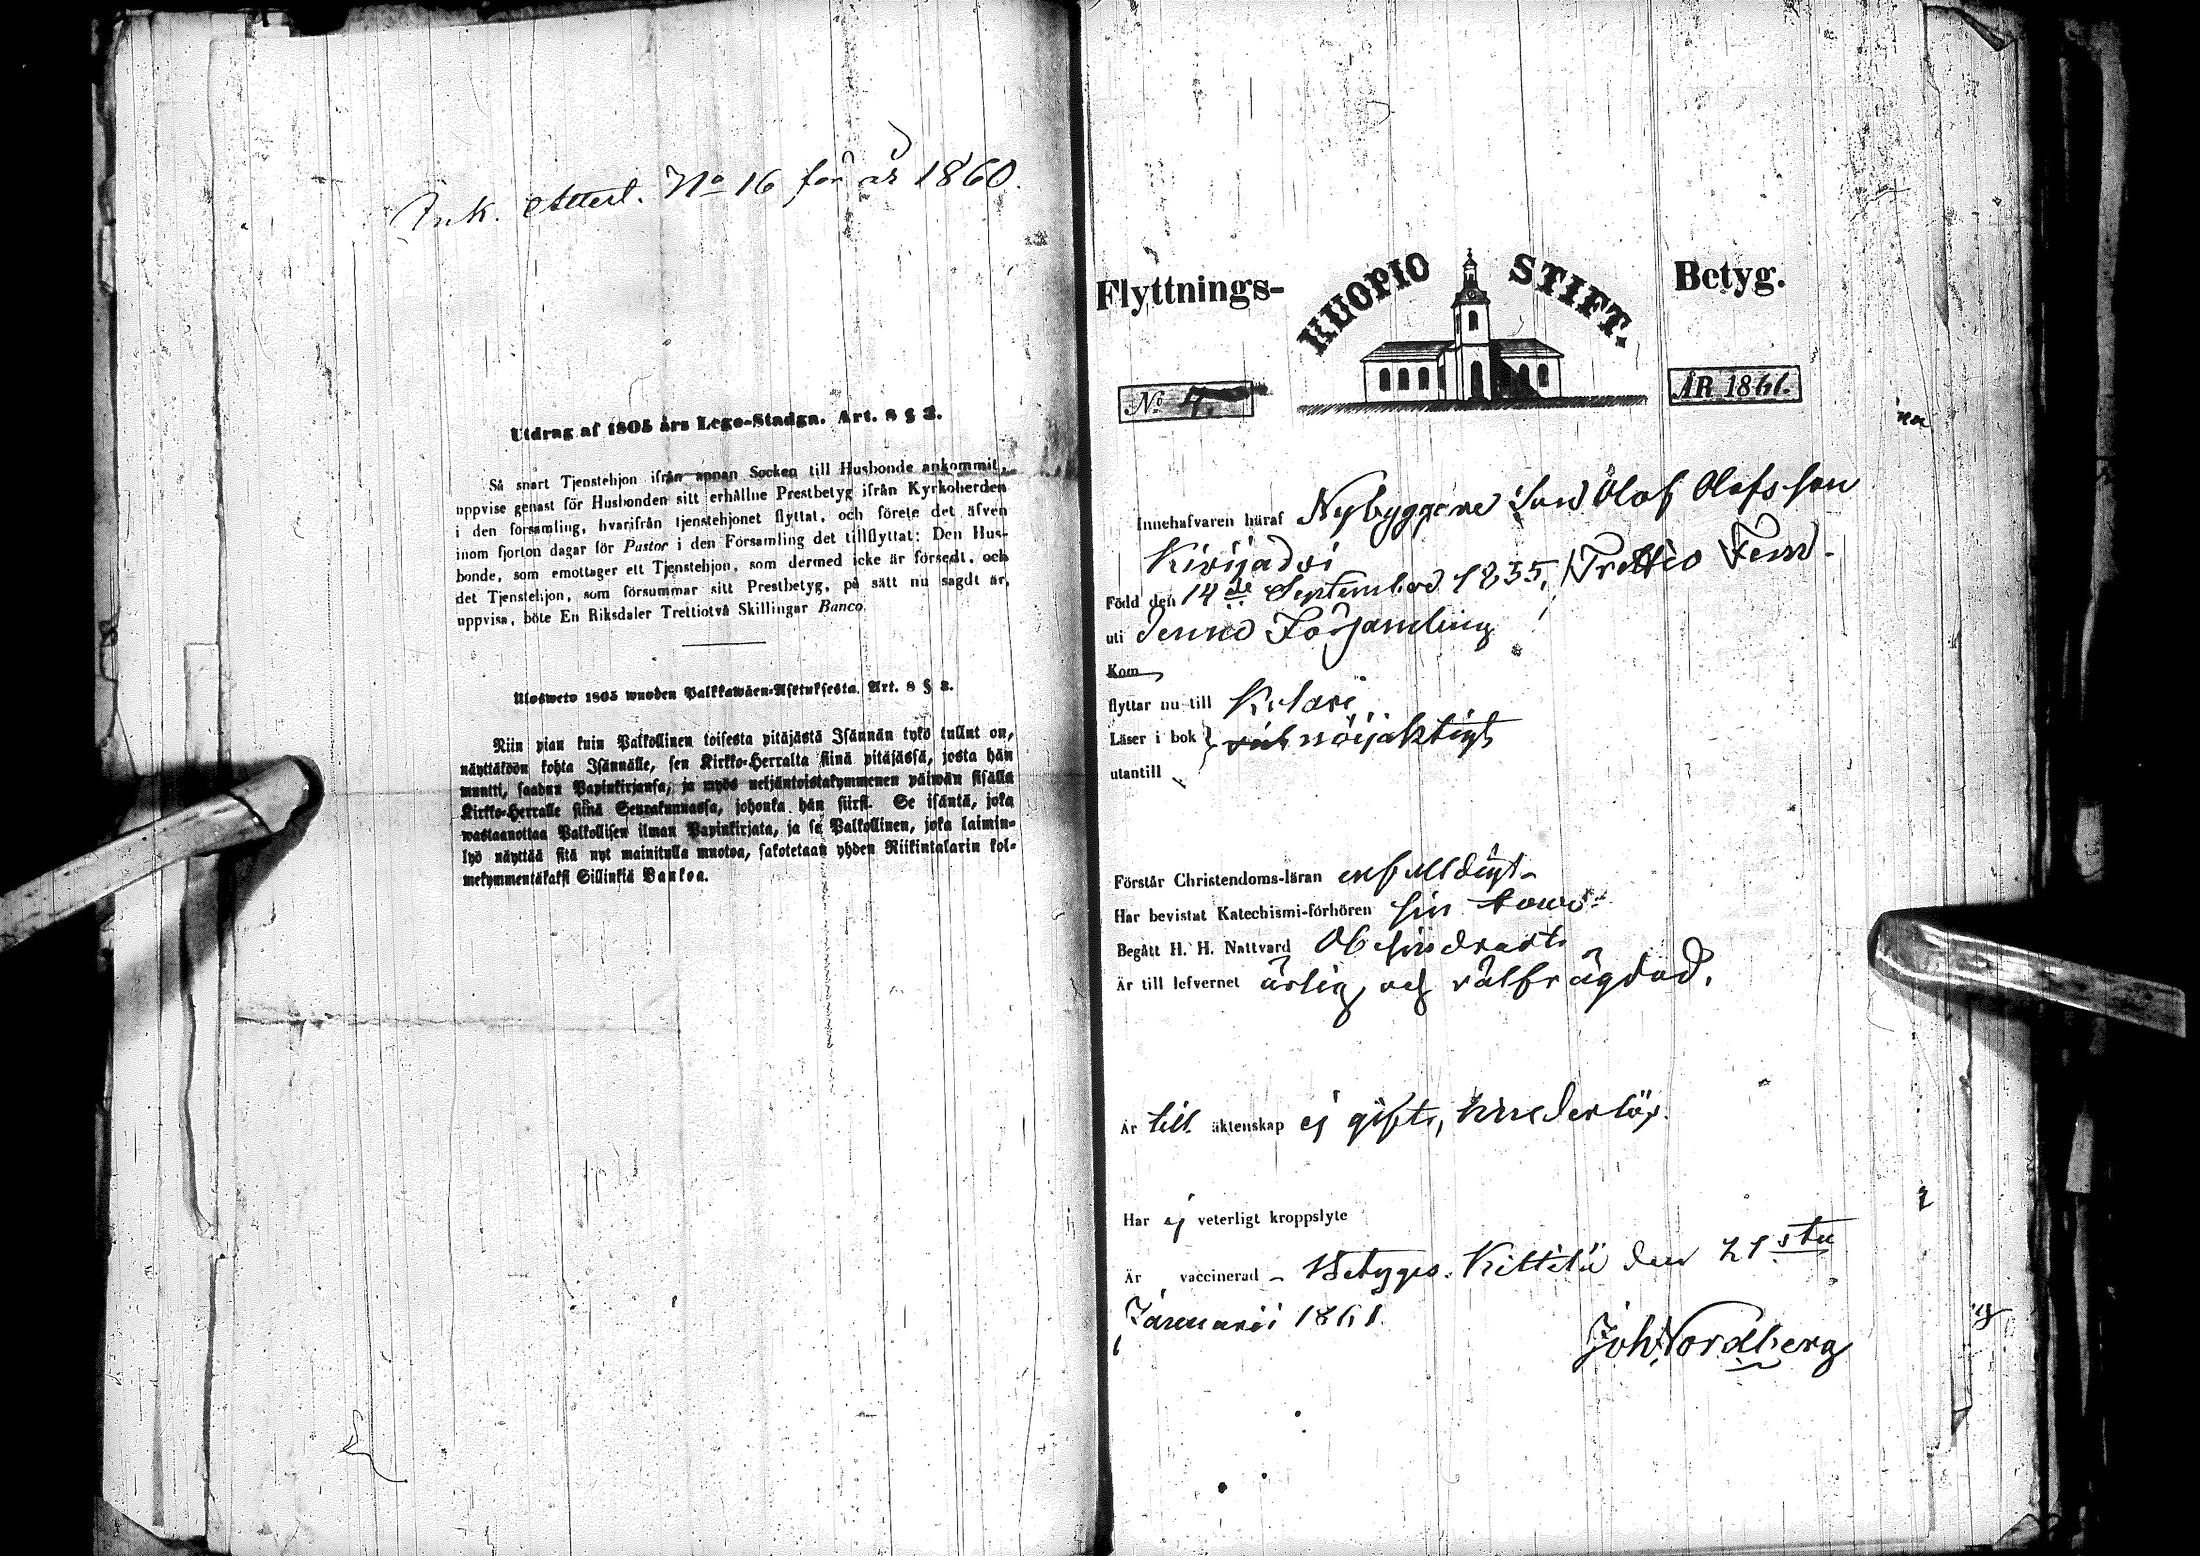 Ink. Attest. No 16 för år 1860.
Utdrag af 1805 års Lego-Stadga. Art. 8 § 2.
Så snart Tjenstehjon ifrån annan Socken till Husbonde ankommit,
uppvise genast för Husbonden sitt erhållne Prestbetyg ifrån Kyrkoherden
i den forsamling, hvarifrån tjenstehjonet flyttat, och förete det äfven
inom fjorton dagar för Pastor i den Forsamling det tillflyttat: Den Hus-
bonde, som emottager ett Tjenstehjon, som dermed icke är försedt, och
det Tjenstehjon, som försummar sitt Prestbetyg, på sätt nu sagdt är,
uppvisa, böte En Riksdaler Trettiotvå Skillingar Banco.
Ulosweto 1805 wuoden Palkkawäen-Asetuksesta. Art. 8 § 2.
Niin pian kuin Palkollinen toisesta pitäjästä Isännän tykö tullut on,
näyttäköön kohta Isännälle, sen Kirkko-Herralta siinä pitäjässä, josta hän
muutti, saadun Papinkirjansa; ja myös neljäntoistakymmenen päiwän sisällä
Kirkko-Herralle siinä Seurakunnassa, johonka hän siirsi. Se isäntä, joka
wastaanottaa Palkollisen ilman Papinkirjata, ja se Palkollinen, joka laimin-
lyö näyttää sitä nyt mainitulla muotoa, sakotetaan yhden Riikintalarin kol-
mekymmentäkaksi Sillinkiä Bankoa.
Flyttnings- KUOPIO STIFT. Betyg.
No 7. ÅR 1861.
Innehafvaren häraf Nybyggare Son Olof Olofsson
Kirijadri
Född den 14de September 1835, Trettio Fem.
uti denna Församling
Kom
flyttar nu till Kolari
Läser i bok nöijaktigt
utantill
Förstår Christendoms-läran enfalldigt
Har bevistat Katechismi-förhören sin
Begått H. H. Nattvard Obehindradt
Är till lefvernet ärlig och välfrägdad.
Är till äktenskap ej gift, hinderlös.
Har ej veterligt kroppslyte
Är vaccinerad – Betygas. Kittilä den 21sta
Januarii 1861.
Joh Nordberg